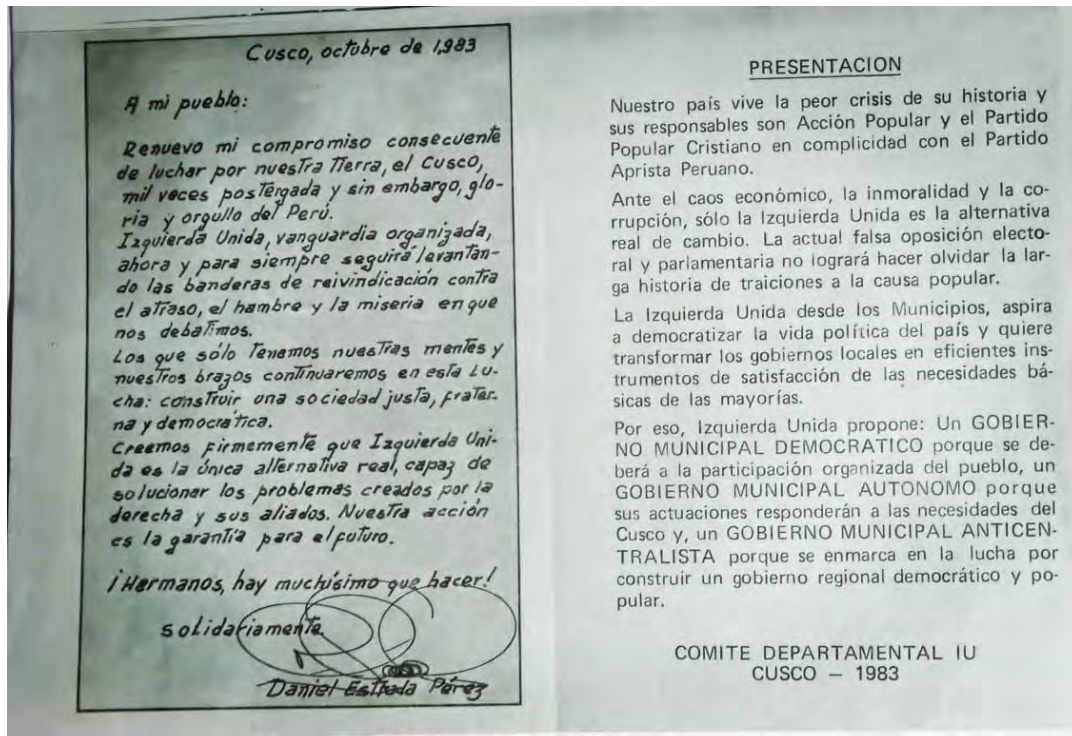 Cusco, octubre de 1,983
A mi pueblo:
Renuevo mi compromiso consecuente
de luchar por nuestra Tierra, el Cusco,
mil veces postergada y sin embargo, glo-
ria y orgullo del Perú.
Izquierda Unida, vanguardia organizada,
ahora y para siempre seguirá levantan-
do las banderas de reivindicación contra
el atraso, el hambre y la miseria en que
nos debatimos.
Los que sólo Tenemos nuestras mentes y
nuestros brazos continuaremos en esta Lu-
cha: construir una sociedad justa, frater-
na y democrática.
Creemos firmemente que Izquierda Uni-
da es la única alternativa real, capaz de
solucionar los problemas creados por la
derecha y sus aliados. Nuestra acción
es la garantía para el futuro.
¡Hermanos, hay muchísimo que hacer!
solidariamente.
Daniel Estrada Pérez
PRESENTACION
Nuestro país vive la peor crisis de su historia y
sus responsables son Acción Popular y el Partido
Popular Cristiano en complicidad con el Partido
Aprista Peruano.
Ante el caos económico, la inmoralidad y la co-
rrupción, sólo la Izquierda Unida es la alternativa
real de cambio. La actual falsa oposición electo-
ral y parlamentaria no logrará hacer olvidar la lar-
ga historia de traiciones a la causa popular.
La Izquierda Unida desde los Municipios, aspira
a democratizar la vida política del país y quiere
transformar los gobiernos locales en eficientes ins-
trumentos de satisfacción de las necesidades bá-
sicas de las mayorías.
Por eso, Izquierda Unida propone: Un GOBIER-
NO MUNICIPAL DEMOCRATICO porque se de-
berá a la participación organizada del pueblo, un
GOBIERNO MUNICIPAL AUTONOMO porque
sus actuaciones responderán a las necesidades del
Cusco y, un GOBIERNO MUNICIPAL ANTICEN-
TRALISTA porque se enmarca en la lucha por
construir un gobierno regional democrático y po-
pular.
COMITE DEPARTAMENTAL IU
CUSCO — 1983